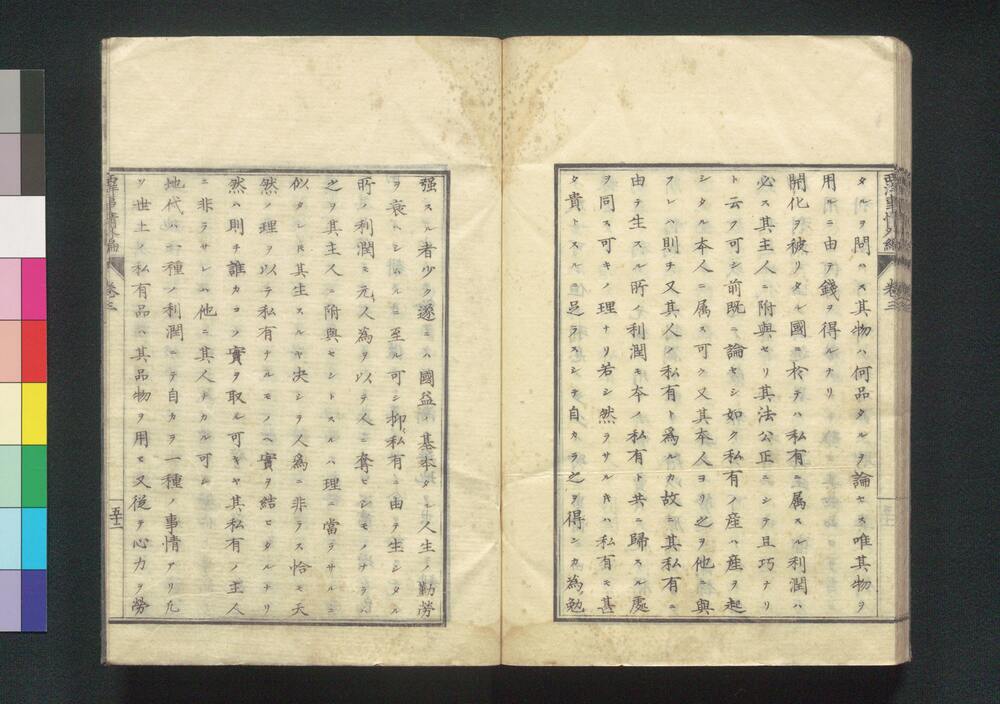 タルヲ問ハス其物ハ何品タルヲ論セス唯其物ヲ
用ルニ由テ錢ヲ得ルナリ
開化ヲ被リタル國ニ於テハ私有ニ属スル利潤ハ
必ス其主人ニ附與セリ其法公正ニシテ且巧ナリ
ト云フ可シ前既ニ論セシ如ク私有ノ産ハ産ヲ起
シタル本人ニ属ス可ク又其本人ヨリ之ヲ他ニ與
フレハ則チ又其人ノ私有ト為ルカ故ニ其私有ニ
由テ生スル所ノ利潤モ本ノ私有ト共ニ歸スル處
ヲ同ス可キノ理ナリ若シ然ラサル片ハ私有モ甚
タ貴トスルニ足ラスシテ自カラ之ヲ得ンカ為勉
西洋事情外編 巻三
强スル者少ク遂ニハ國益ノ基本タル人生ノ勤勞
ヲ衰ヘシムルニ至ル可シ抑私有ニ由テ生シタル
所ノ利潤モ元人為ヲ以テ人ニ奪ヒシモノナラハ
之ヲ其主人ニ附與セントスルハ理ニ當ラサルニ
似タレ𪜈其生スルヤ決シテ人為ニ非ラス恰モ天
然ノ理ヲ以テ私有ナルモノヘ實ヲ結ヒタルナリ
然ハ則チ誰カコノ實ヲ取ル可キヤ其私有ノ主人
ニ非ラサレハ他ニ其人ナカル可シ
地代ハ一種ノ利潤ニテ自カラ一種ノ事情アリ凡
ソ世上ノ私有品ハ其品物ヲ用ヒ又從テ心力ヲ勞
西洋事情外編 巻三 五十二